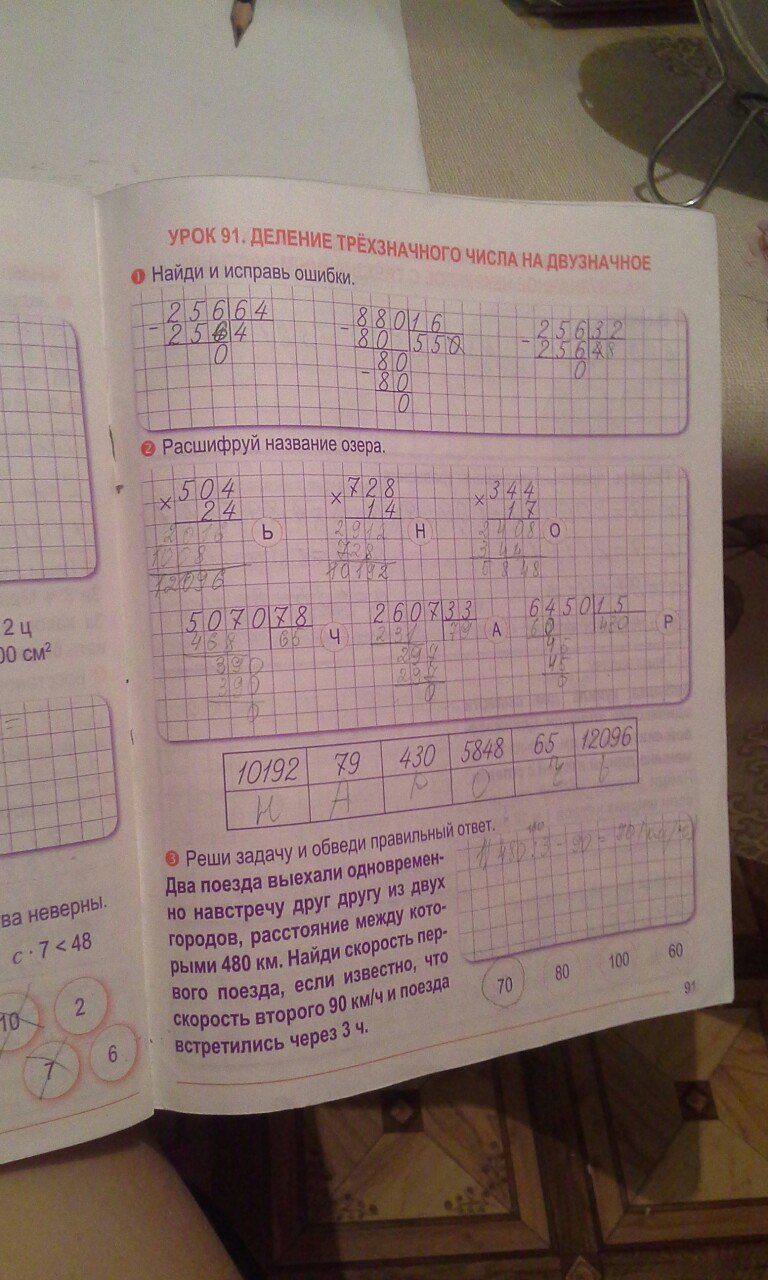 УРОК 91. ДЕЛЕНИЕ ТРЁХЗНАЧНОГО ЧИСЛА НА ДВУЗНАЧНОЕ
1 Найди и исправь ошибки.
25664 88016 25632
- 2564 - 80 550 - 25648
0 80 0
- 80
0
2 Расшифруй название озера.
504 728 344
× 24 × 14 × 17
2016 Ь 2912 Н 2408 О
1008 728 344
12096 10192 5848
507078 260733 645015
468 65 Ч 231 79 А 60 Р
390 297 45
390 297 45
0 0 0
10192 79 430 5848 65 12096
Н А Р О Ч Ь
3 Реши задачу и обведи правильный ответ.
Два поезда выехали одновремен-
но навстречу друг другу из двух
городов, расстояние между кото-
рыми 480 км. Найди скорость пер-
вого поезда, если известно, что
скорость второго 90 км/ч и поезда
встретились через 3 ч.
1) 480 : 3 - 90 = 70 (км/ч)
70 80 100 60
91
2 ц
00 см²
=
ва неверны.
c · 7 < 48
10 2
7 6